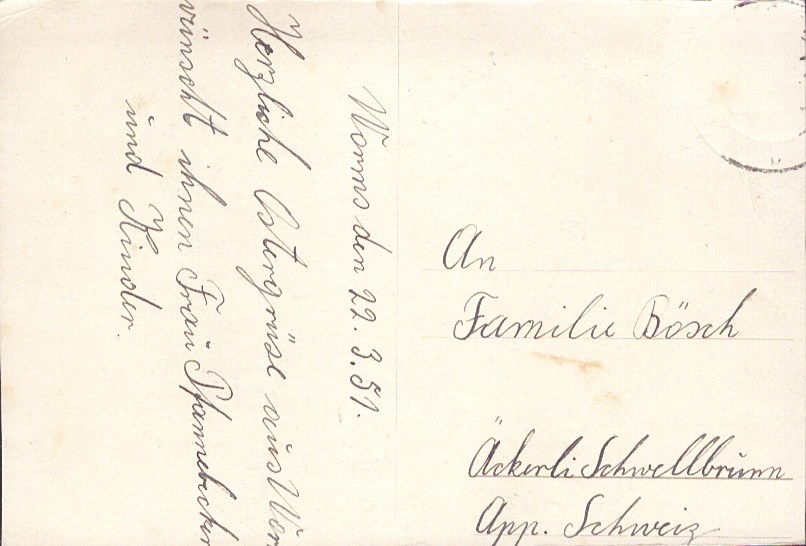 Worms den 22. 3. 51.
Herzliche Ostergrüse aus Wor
wünscht ihnen Frau Pfannebecker
und Kinder.
An
Familie Bösch
Äckerli Schwellbrunn
App. Schweiz